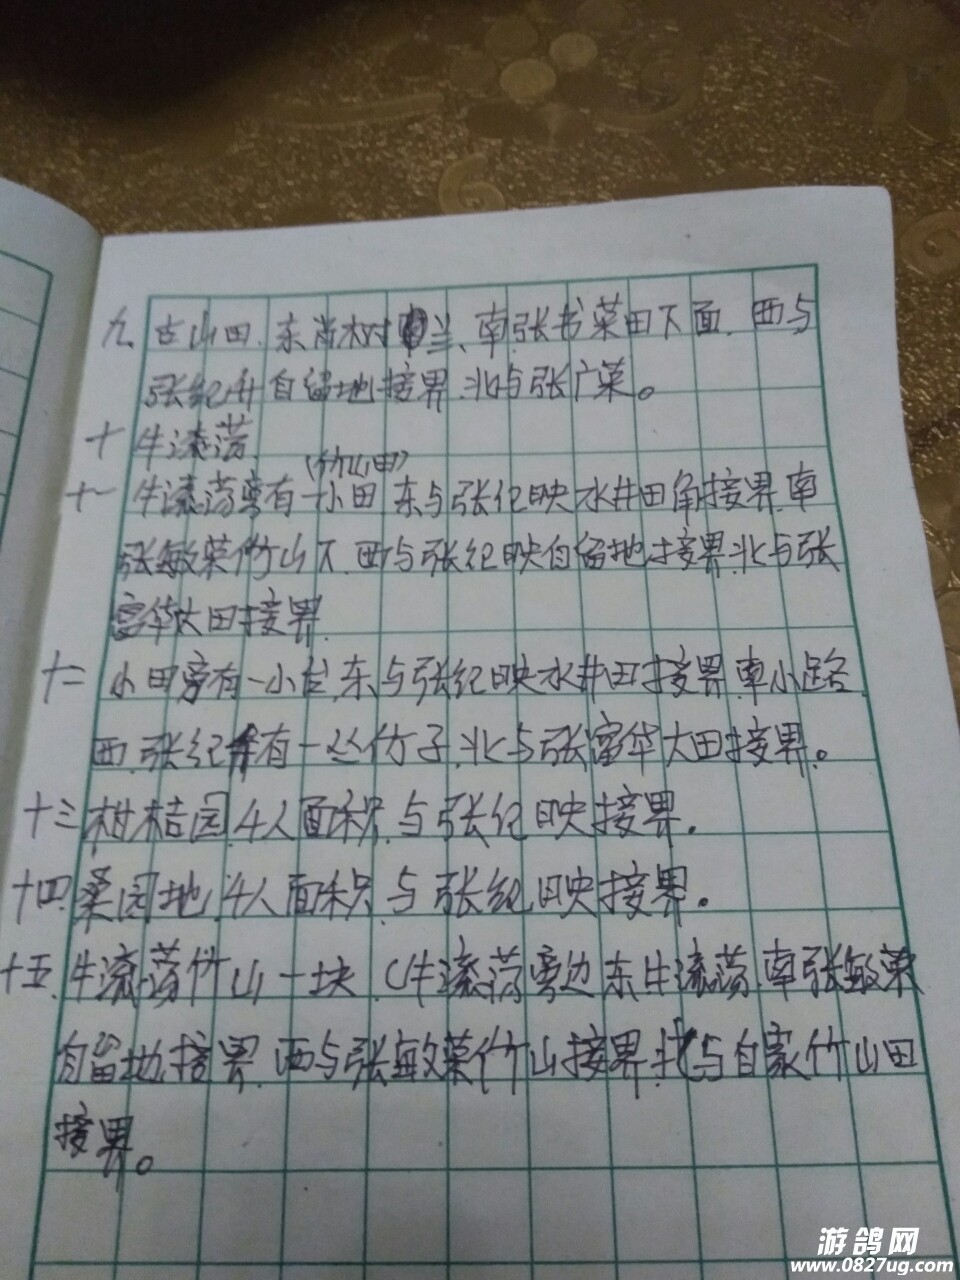 九、古山田.东 树 兰、南张书菜田下面.西与
张纪升自留地接界.北与张广菜。
十 牛流荡.
(竹山田)
十一 牛流荡旁有一小田.东与张纪映水井田角接界.南
张敏菜竹山下.西与张纪映自留地接界.北与张
富华大田接界.
十二 小田旁有一小台,东与张纪映水井田接界.南小路
西.张纪升有一丛竹子.北与张富华大田接界。
十三 柑桔园.4人面积.与张纪映接界.
十四.桑园地.4人面积.与张纪映接界。
十五.牛流荡竹山一块.(牛流荡旁边东牛流荡.南张敏菜
自留地接界.西与张敏菜竹山接界.北与自家竹山田
接界。
游鸽网
www.0827ug.com